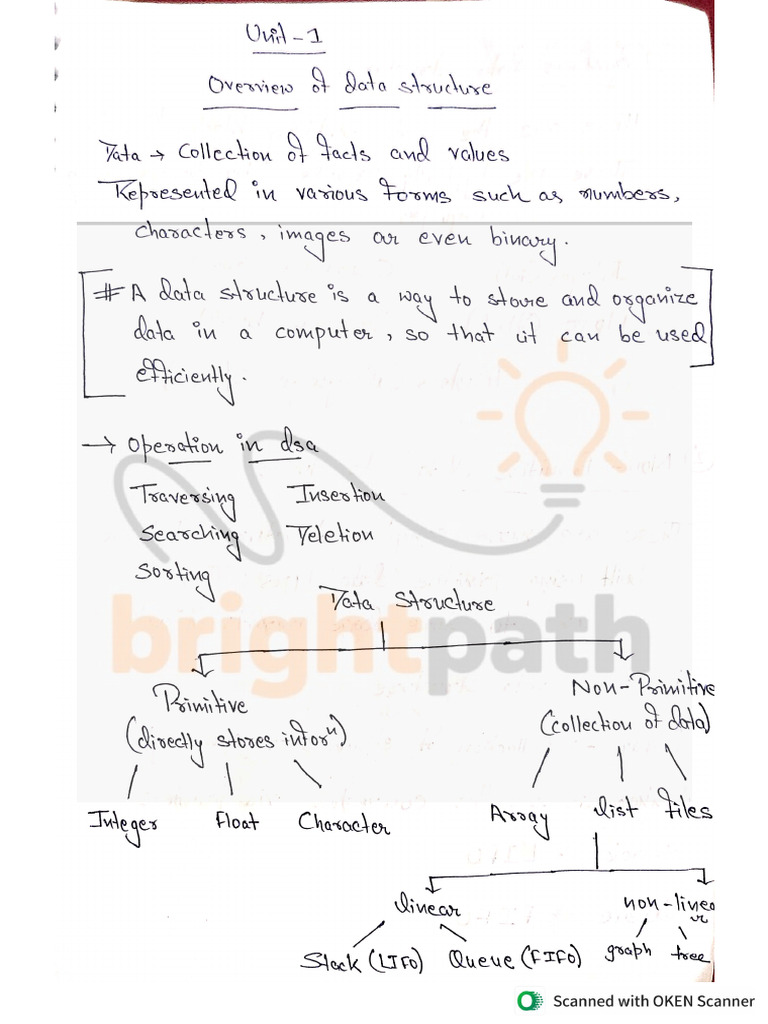 Unit - 1
Overview of data structure
Data → Collection of facts and values
Represented in various forms such as numbers,
characters, images or even binary.
# A data structure is a way to store and organize
data in a computer, so that it can be used
efficiently.
→ Operation in dsa
Traversing Insertion
Searching Deletion
Sorting
Data Structure
brightpath
Primitive Non-Primitive
(directly stores inforⁿ) (collection of data)
Integer Float Character Array list files
linear non-linear
Stack (LIFO) Queue (FIFO) graph tree
Scanned with OKEN Scanner